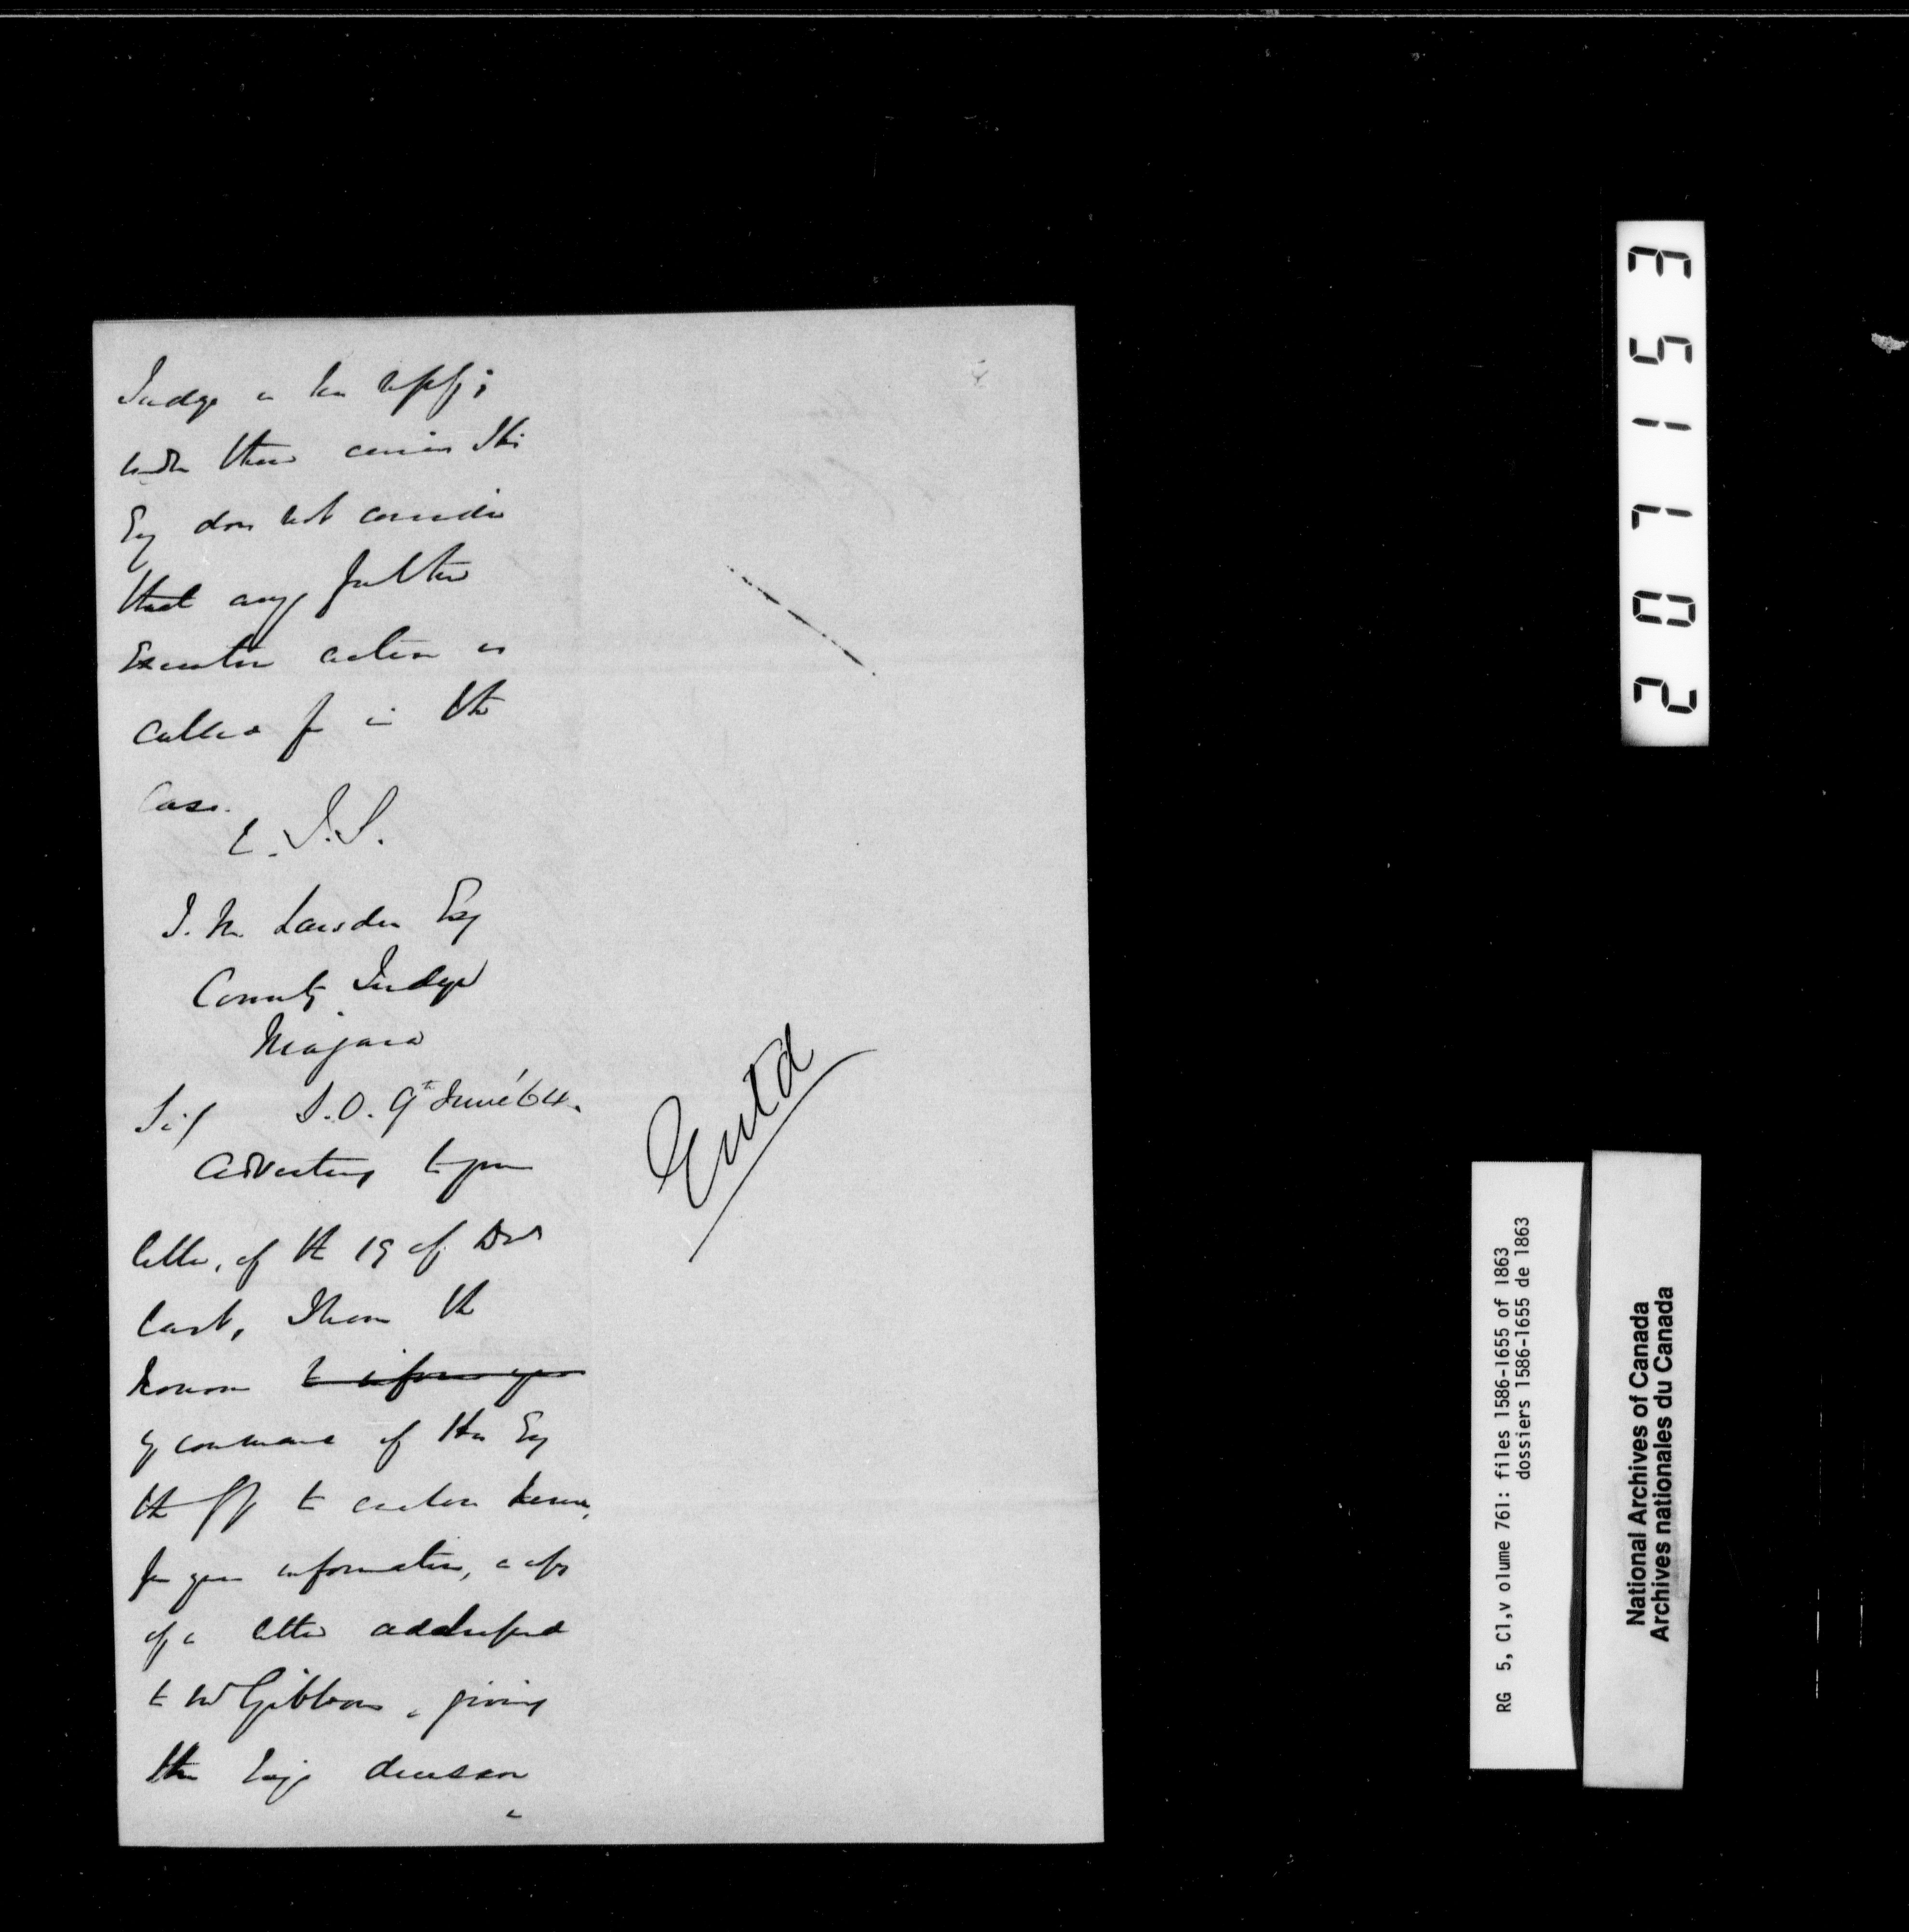 Judge in his
under these His
Ey does not consider
that any further
Executive action is
called for in the
Case.
E. P. S.
Lawder Esq
County Judge
Niagara
Sir S.O. 9th June '64.
Adverting to your
letter, of the 19 of
last, I have the
honor to inform you
by command of His Ey
the to enclose
for your information, a copy
of a letter addressed
to Mr Gibbons, giving
the decision
Entd
2071153
RG 5, Cl,v olume 761: files 1586-1655 of 1863
dossiers 1586-1655 de 1863
National Archives of Canada
Archives nationales du Canada